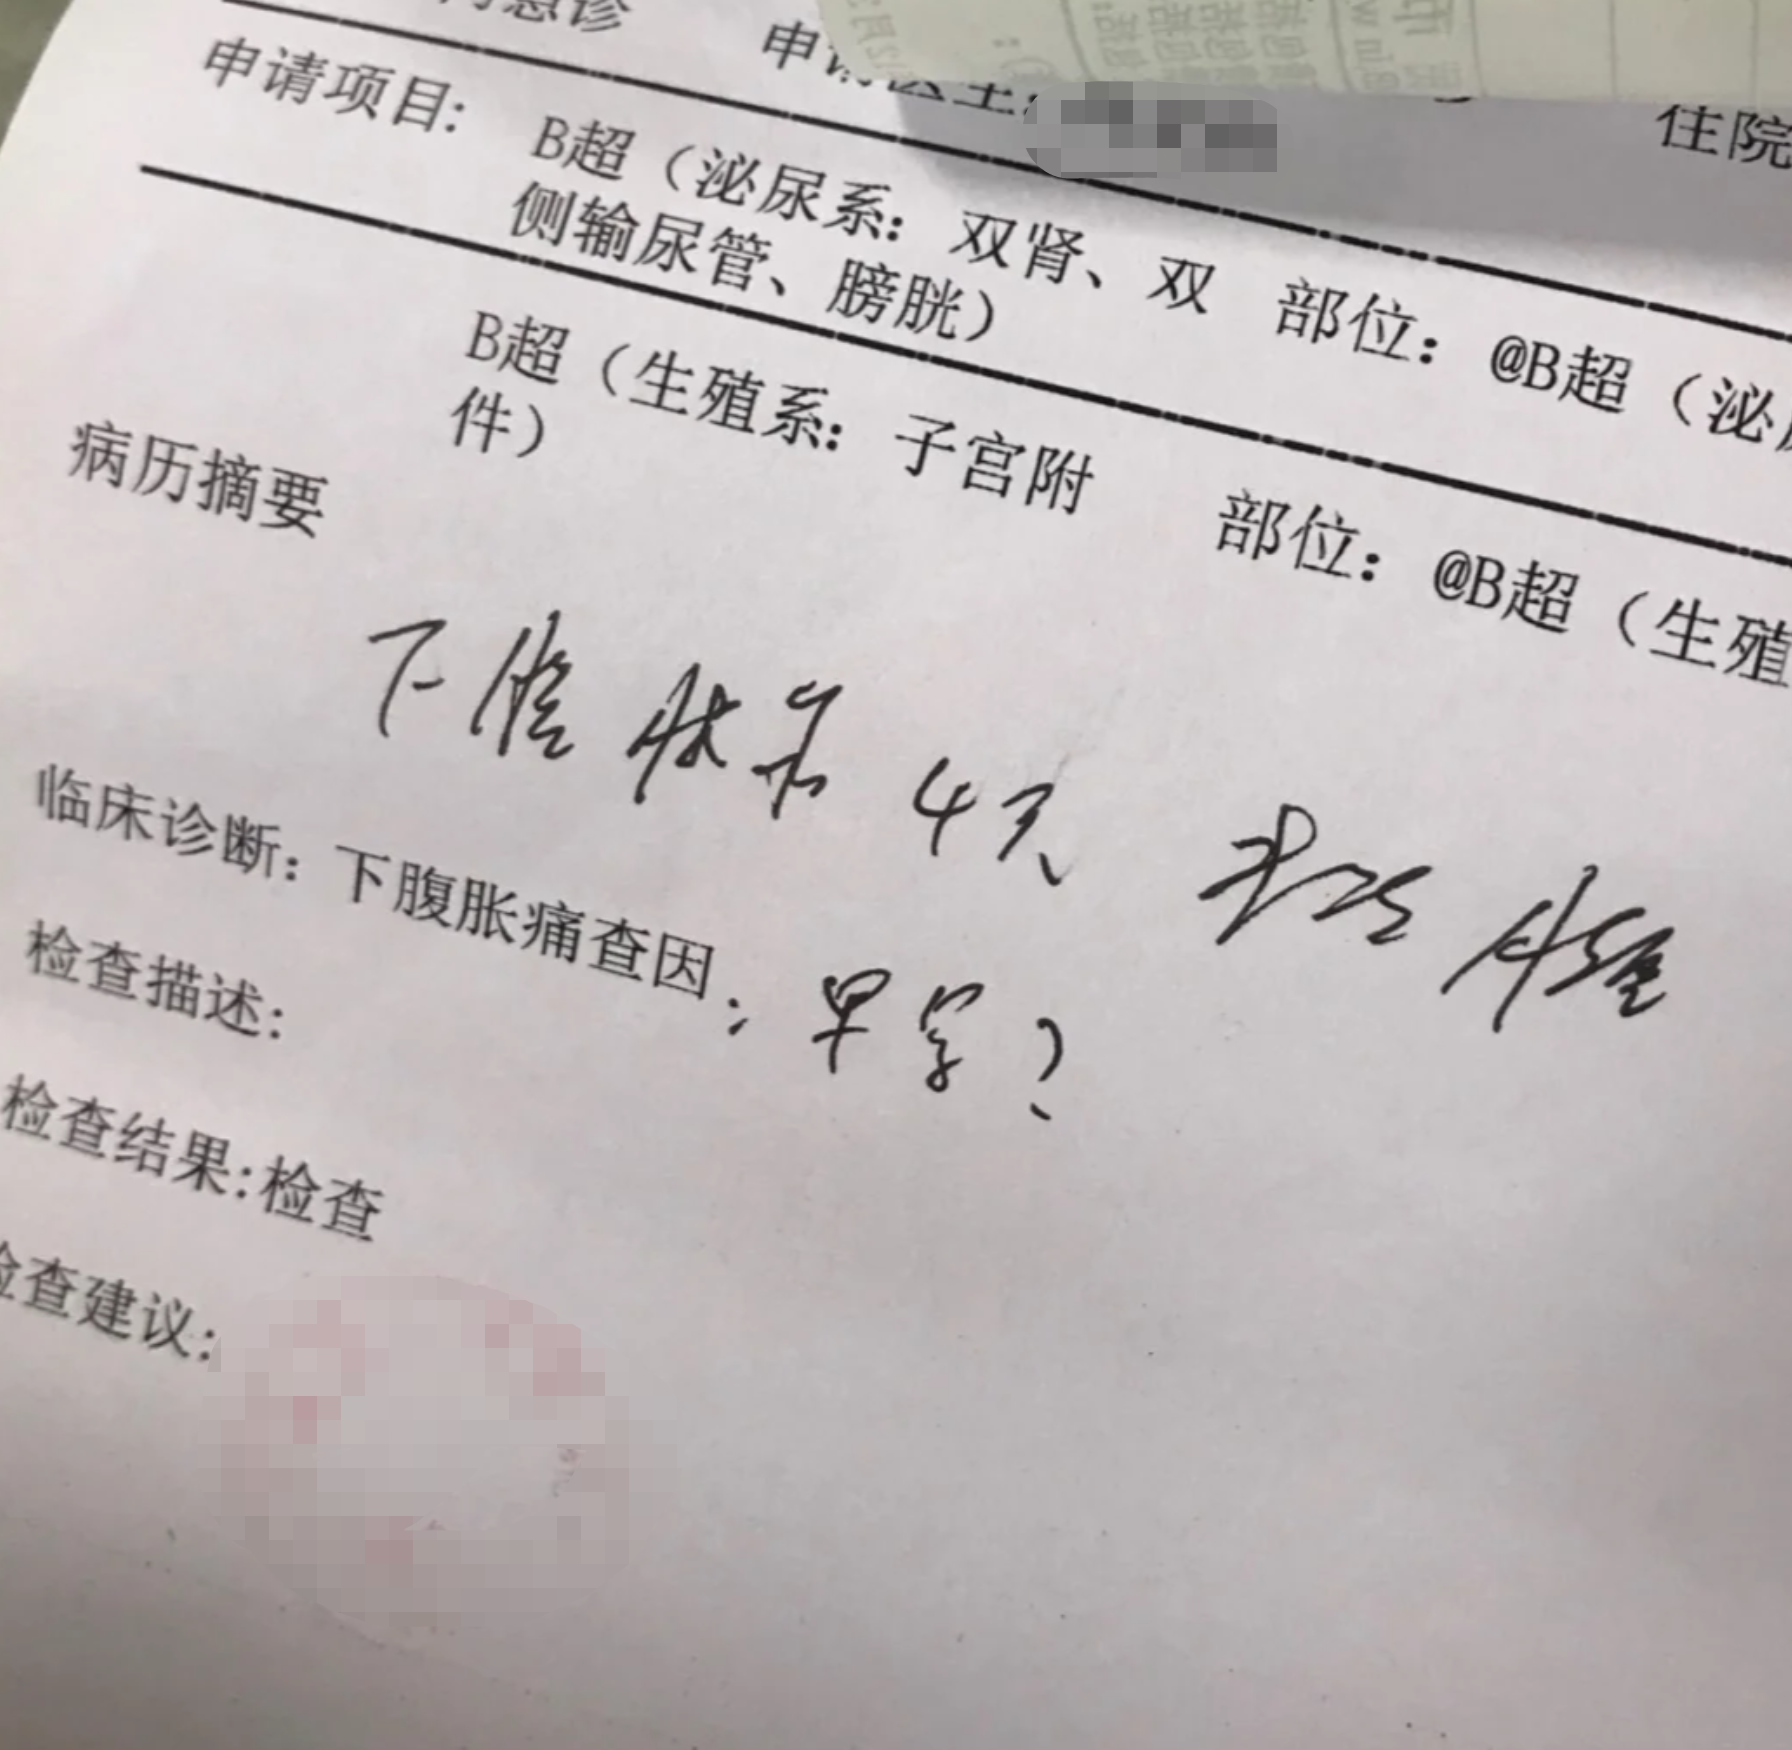 急诊 申请医生:
住院
申请项目: B超（泌尿系：双肾、双 部位：@B超（泌尿
侧输尿管、膀胱）
B超（生殖系：子宫附 部位：@B超（生殖
件）
病历摘要
下腹胀痛4天
临床诊断：下腹胀痛查因；早孕？
检查描述:
检查结果:检查
检查建议: